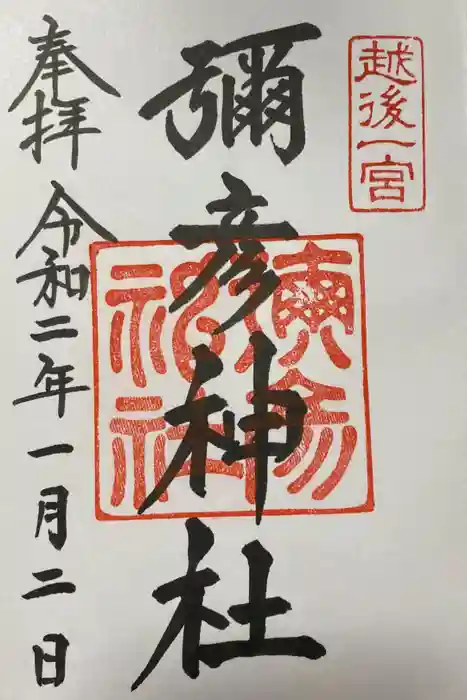 越後一宮
彌彦神社
奉拝
令和二年一月二日